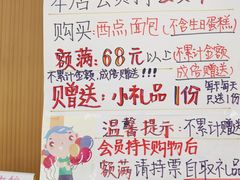 购买:西点、面包(不含生日蛋糕)
额满:68元以上(不累计金额 成倍赠送)
不累计金额 成倍赠送!!!
赠送:小礼品1份
每卡每天
只送1份
温馨提示:不累计赠送
会员持卡购物后
额满 请持票自取礼品